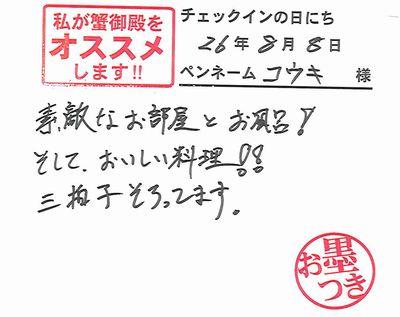 私が蟹御殿を
オススメ
します!!
チェックインの日にち
26年8月8日
ペンネーム コウキ 様
素敵なお部屋とお風呂!
そして、おいしい料理!!
三拍子そろってます。
お墨つき